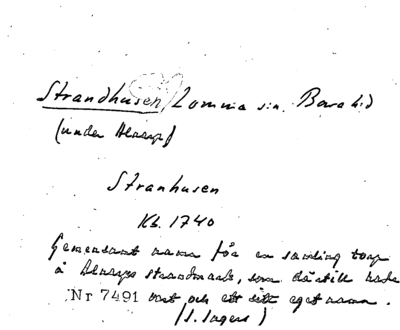 Strandhusen, Lomma sn. Bara hd
(under Alnarp)
Stranhusen
Kb. 1740
Gemensamt namn för en samling torp
å Alnarps strandmark, som därtill hade
Nr 7491 vart och ett sitt eget namn.
(I. Ingers)